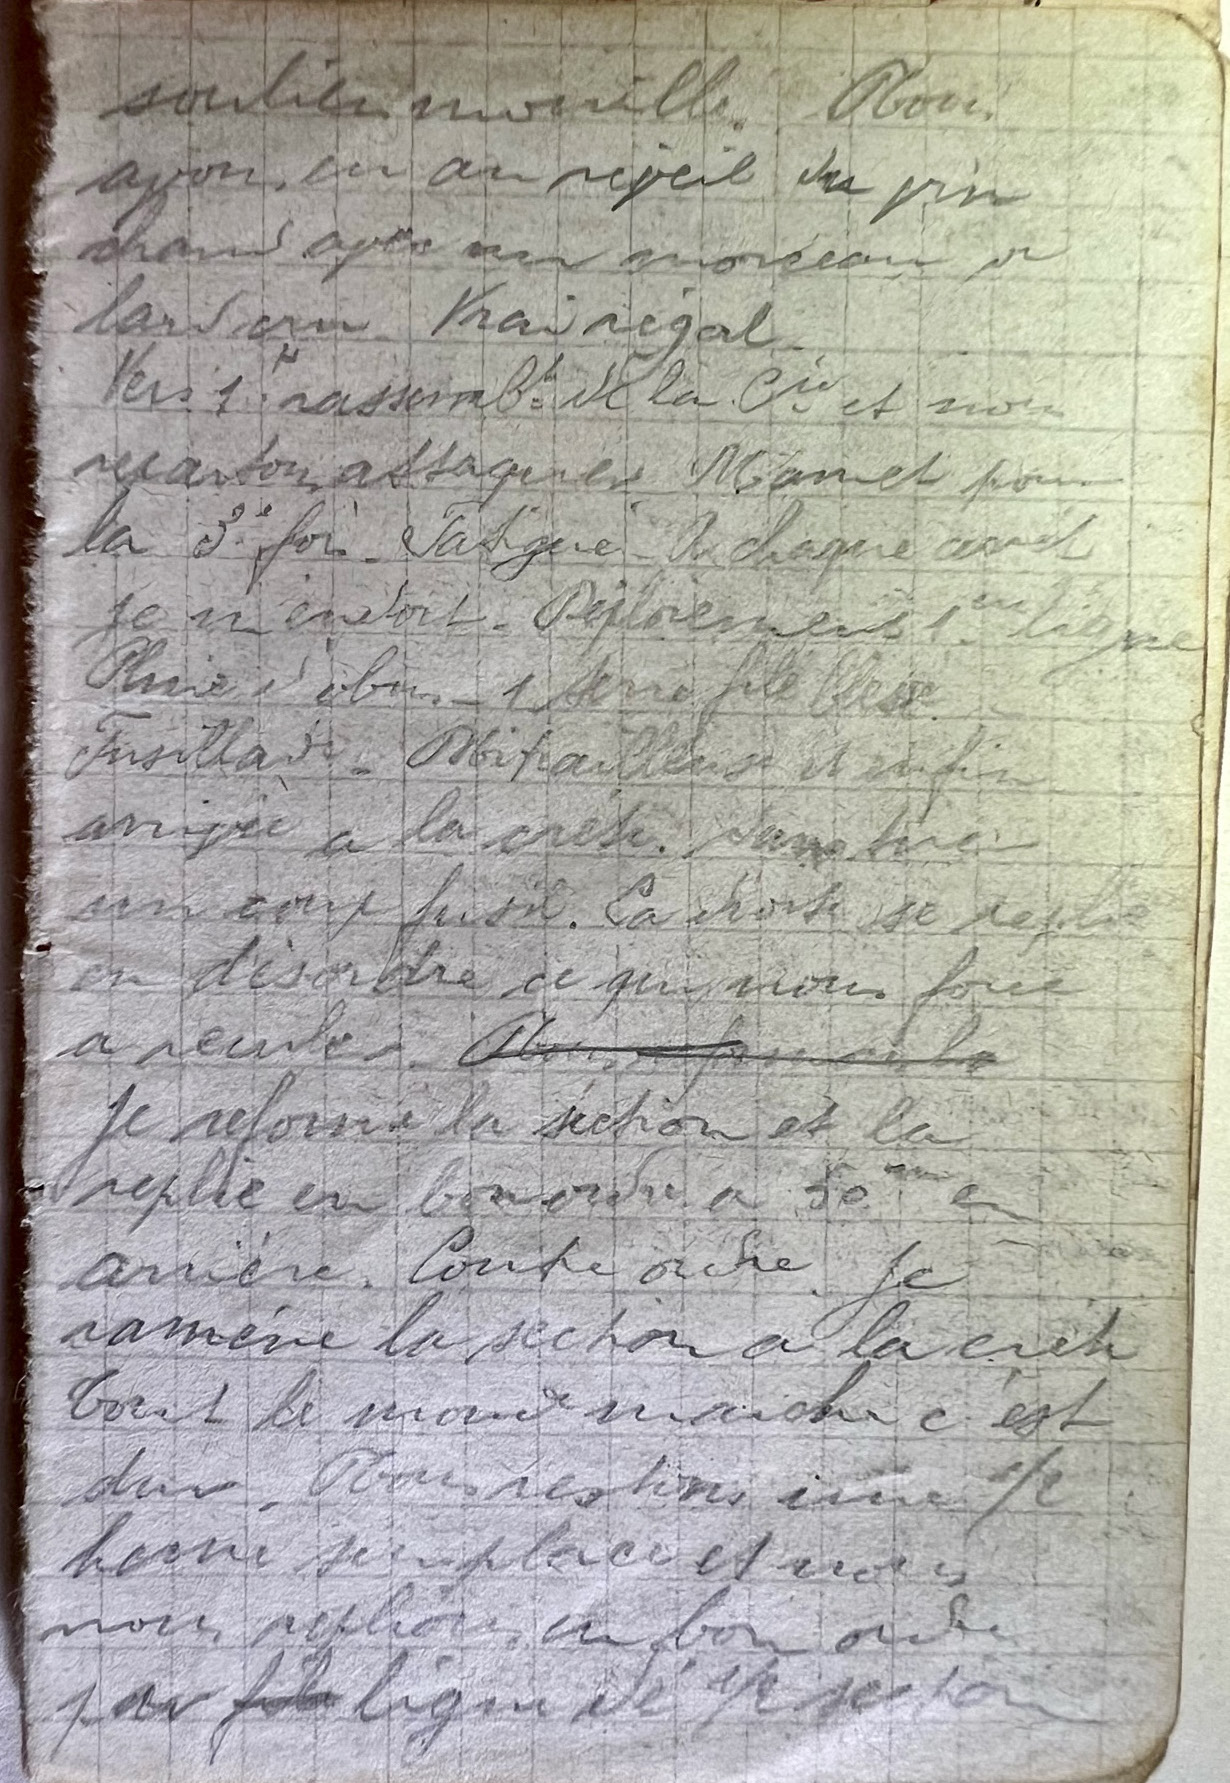 soulier mouillé. Nous
avons eu au réveil du vin
chaud après un morceau de
lard cru. Vrai régal.
Vers 1H rassembt de la Cie et nous
repartons attaquer Mamet pour
la 3e fois. Fatigue. A chaque arrêt
je m'endort. Déploiement 1ere ligne
Pluie d'obus - 1 serre file blessé
Fusillade. Mitrailleuse et enfin
arrivée a la crête. sans tirer
un coup fusil. La droite se replie
en désordre ce qui nous force
a reculer. Nous reformons la
Je reforme la section et la
replie en bon ordre a 50m en
arrière. Contre ordre. Je
ramène la section a la crête
Tout le monde marche c'est
dur. Nous restons une 1/2
heure sur place et nous
nous replions en bon ordre
par file ligne de 1/2 section